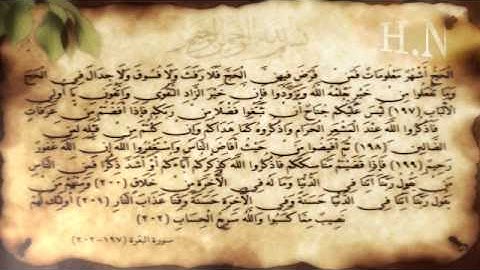 بسم الله الرحمن الرحيم
H.N
الحَجُّ أَشْهُرٌ مَعْلُومَاتٌ فَمَن فَرَضَ فِيهِنَّ الحَجَّ فَلَا رَفَثَ وَلَا فُسُوقَ وَلَا جِدَالَ فِي الحَجِّ
وَمَا تَفْعَلُوا مِنْ خَيْرٍ يَعْلَمْهُ اللهُ وَتَزَوَّدُوا فَإِنَّ خَيْرَ الزَّادِ التَّقْوَى وَاتَّقُونِ يَا أُولِي
الأَلْبَابِ (١٩٧) لَيْسَ عَلَيْكُمْ جُنَاحٌ أَن تَبْتَغُوا فَضْلًا مِن رَبِّكُمْ فَإِذَا أَفَضْتُم مِنْ عَرَفَاتٍ
فَاذْكُرُوا اللهَ عِنْدَ المَشْعَرِ الحَرَامِ وَاذْكُرُوهُ كَمَا هَدَاكُمْ وَإِن كُنْتُم مِن قَبْلِهِ لَمِنَ
الضَّالِّينَ (١٩٨) ثُمَّ أَفِيضُوا مِنْ حَيْثُ أَفَاضَ النَّاسُ وَاسْتَغْفِرُوا اللهَ إِنَّ اللهَ غَفُورٌ
رَحِيمٌ (١٩٩) فَإِذَا قَضَيْتُم مَنَاسِكَكُمْ فَاذْكُرُوا اللهَ كَذِكْرِكُمْ آبَاءَكُمْ أَوْ أَشَدَّ ذِكْرًا فَمِنَ النَّاسِ
مَن يَقُولُ رَبَّنَا آتِنَا فِي الدُّنْيَا وَمَا لَهُ فِي الآخِرَةِ مِنْ خَلَاقٍ (٢٠٠) وَمِنْهُم مَن
يَقُولُ رَبَّنَا آتِنَا فِي الدُّنْيَا حَسَنَةً وَفِي الآخِرَةِ حَسَنَةً وَقِنَا عَذَابَ النَّارِ (٢٠١) أُولَئِكَ لَهُمْ
نَصِيبٌ مِمَّا كَسَبُوا وَاللهُ سَرِيعُ الحِسَابِ (٢٠٢)
سورة البقرة (١٩٧-٢٠٢)